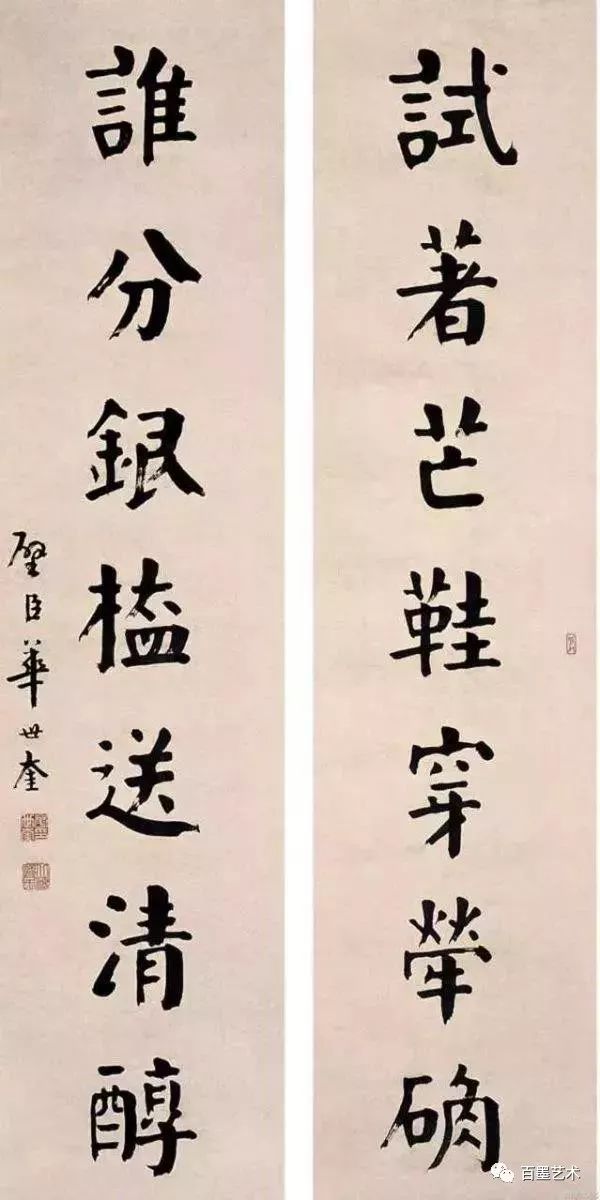 試著芒鞋穿犖确
誰分銀榼送清醇
璧臣華世奎
百墨艺术